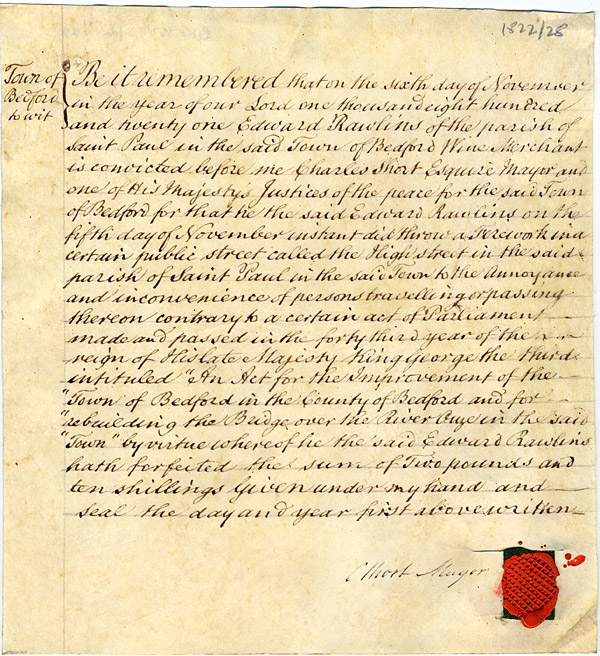 1822/28
Town of
Bedford
to wit
Be it remembered that on the sixth day of November
in the year of our Lord one thousand eight hundred
and twenty one Edward Rawlins of the parish of
Saint Paul in the said Town of Bedford Wine Merchant
is convicted before me Charles Short Esquire Mayor and
one of His Majesty's Justices of the peace for the said Town
of Bedford for that he the said Edward Rawlins on the
fifth day of November instant did throw a Firework in a
certain public street called the High street in the said
parish of Saint Paul in the said Town to the Annoyance
and inconvenience of persons travelling or passing
thereon contrary to a certain act of Parliament
made and passed in the forty third year of the
reign of His late Majesty King George the third
intituled "An Act for the Improvement of the
"Town of Bedford in the County of Bedford and for
"rebuilding the Bridge over the River Ouze in the said
"Town" by virtue whereof he the said Edward Rawlins
hath forfeited the sum of Two pounds and
ten shillings Given under my hand and
seal the day and year first above written
C Short Mayor